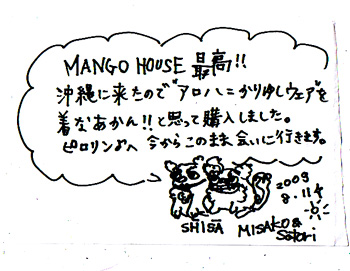 MANGO HOUSE 最高!!
沖縄に来たので"アロハ=かりゆしウェア"を
着なあかん!!と思って購入しました。
ピロリン♪へ 今からこのまま会いに行きます。
2009
8.114
SHISA MISAKO&
Satori